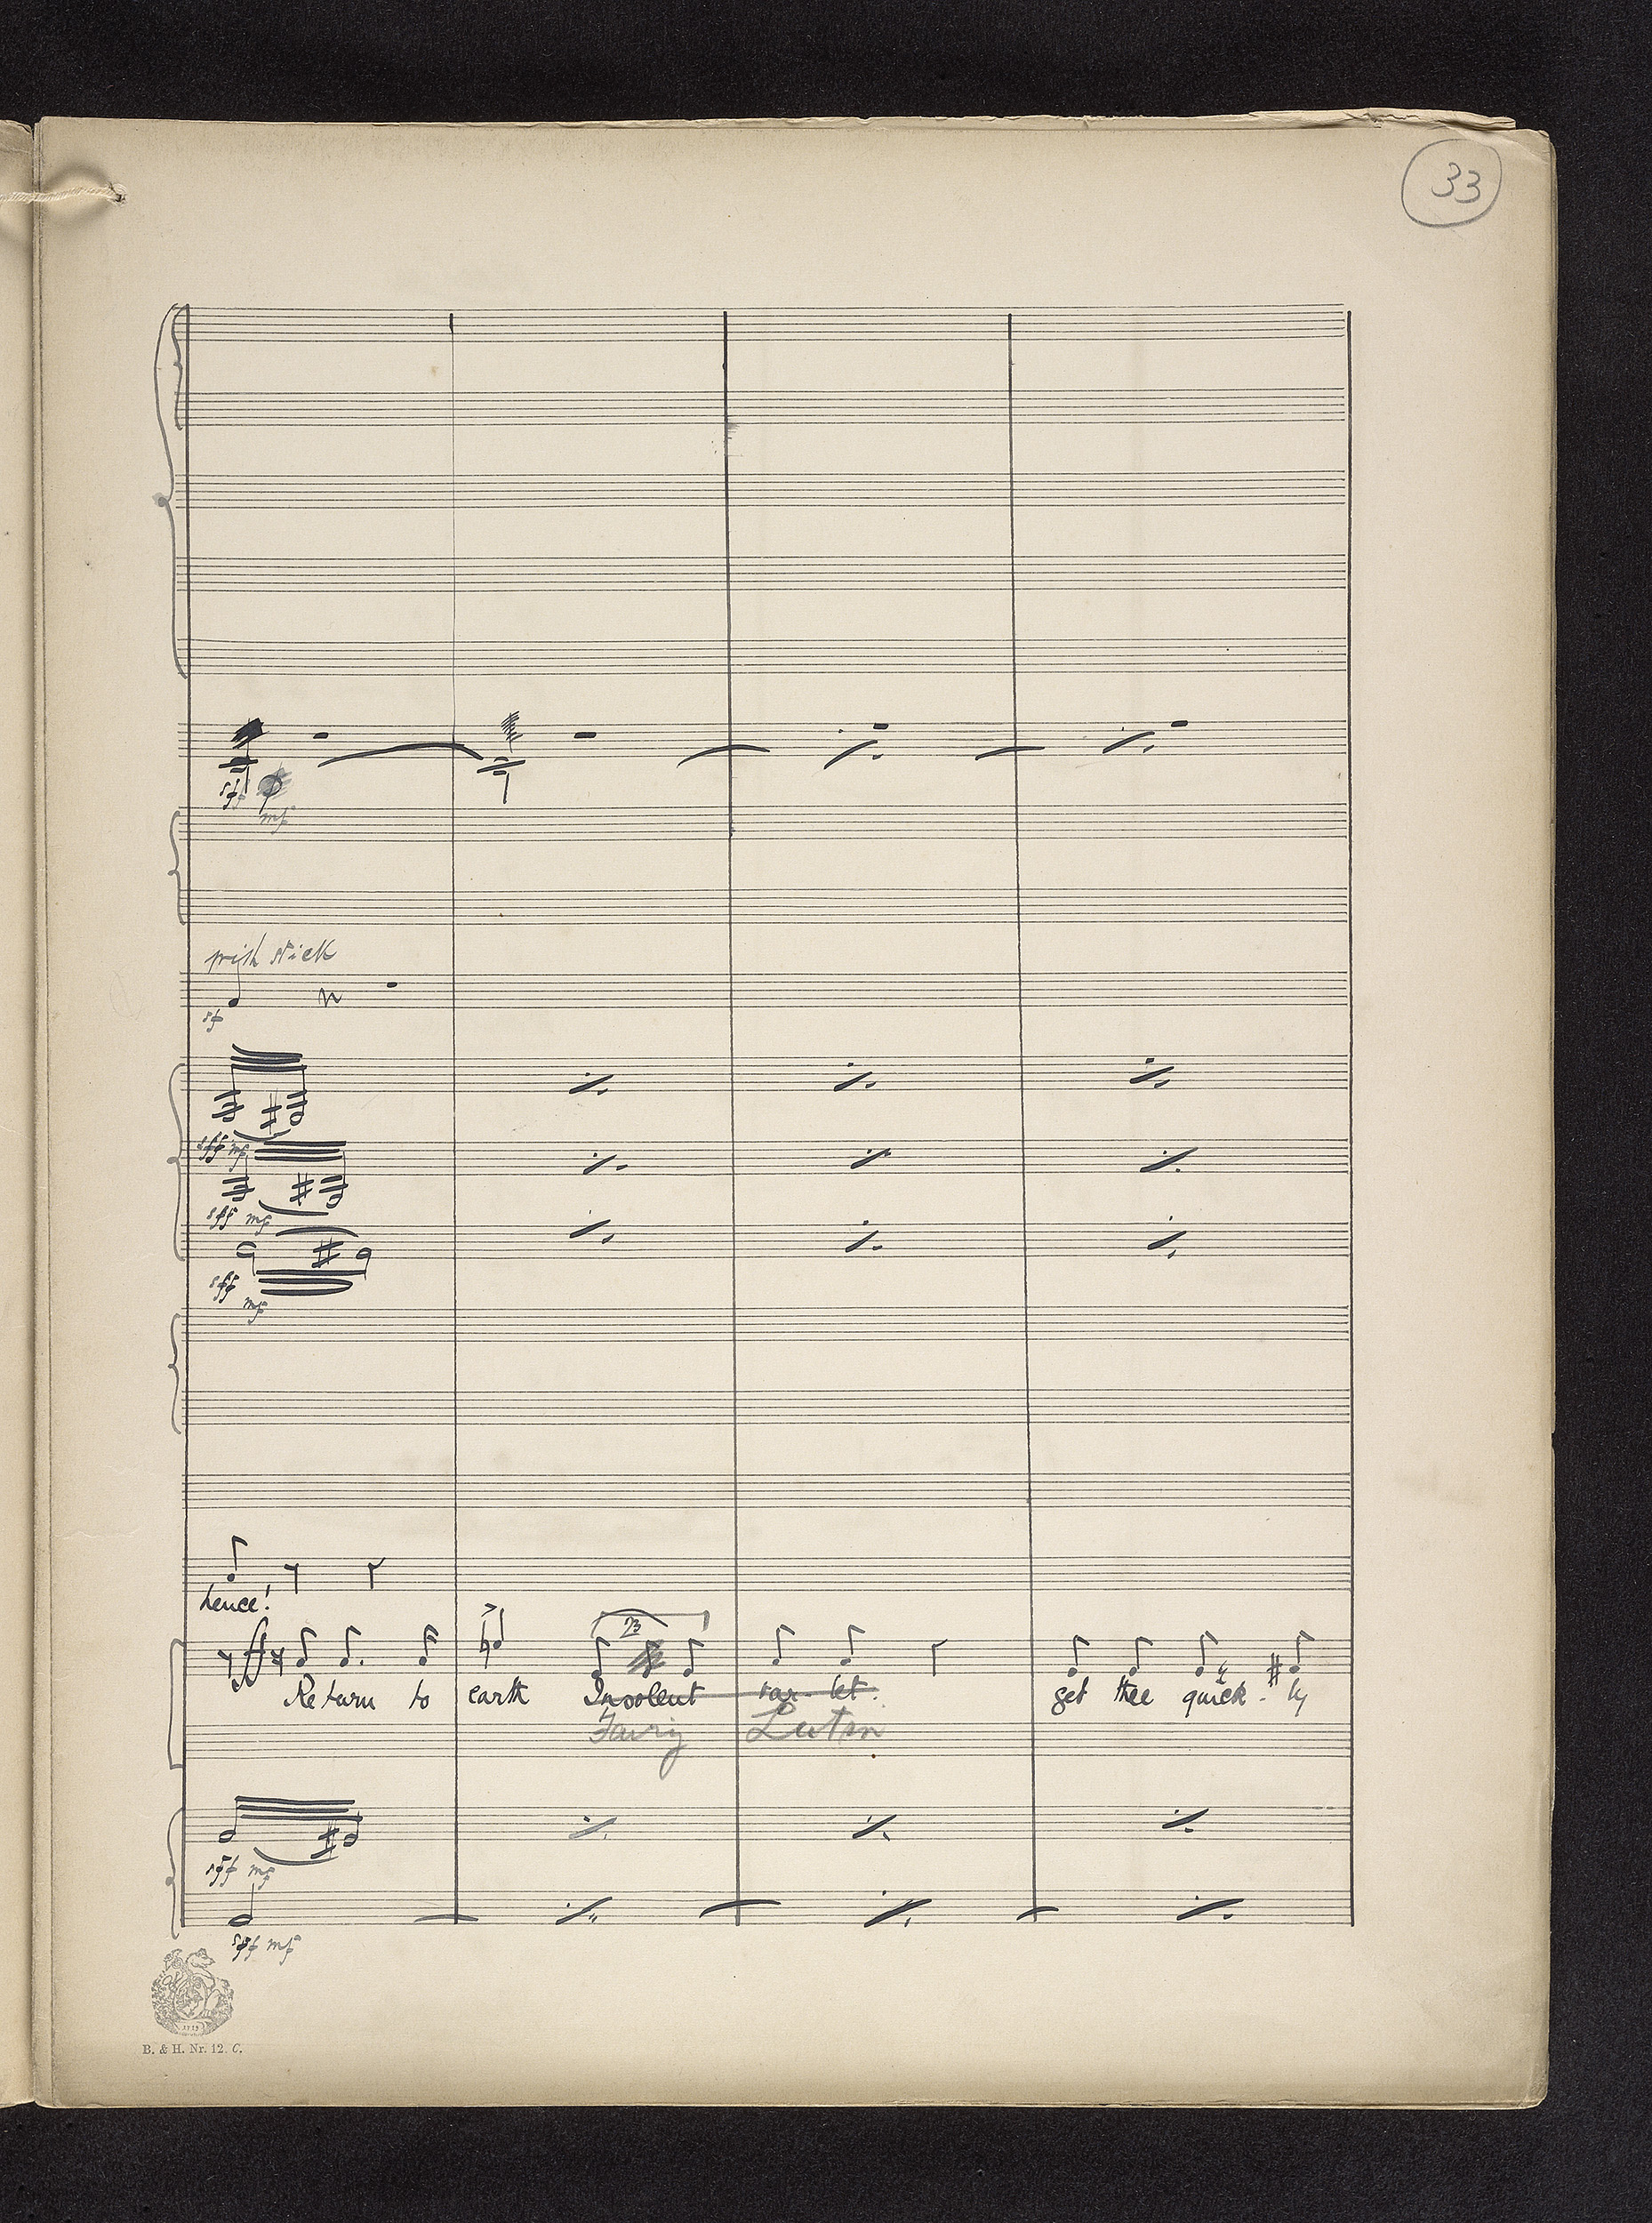 33
sff
mf
with stick
sf
sff mf
sff mf
sff
mf
hence!
3
ff
Return to earth Insolent var-let. get thee quick-ly
Fairy Lutin
sff mf
sff mf
1719
B. & H. Nr. 12. C.